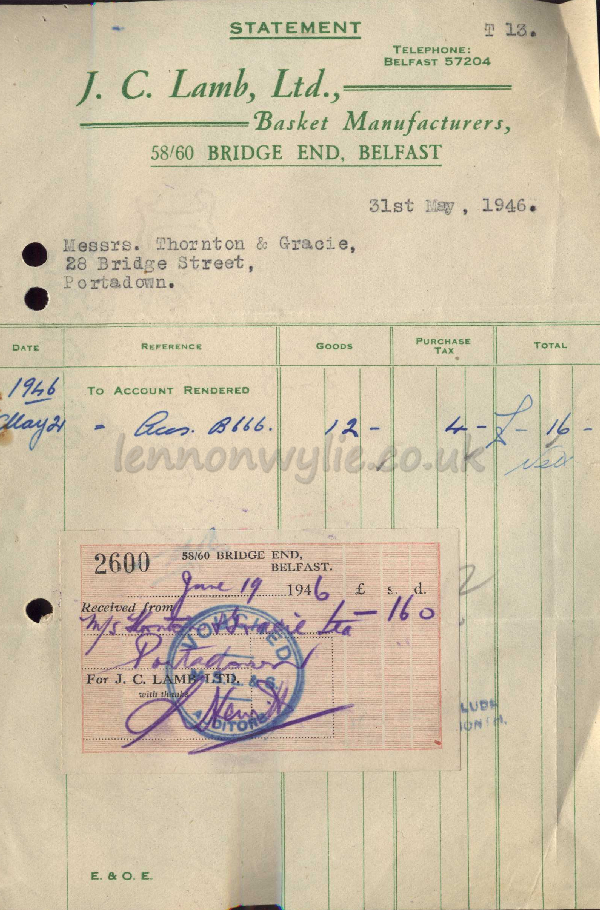 STATEMENT
T 13.
TELEPHONE:
BELFAST 57204
J. C. Lamb, Ltd.,
Basket Manufacturers,
58/60 BRIDGE END, BELFAST
31st May, 1946.
Messrs. Thornton & Gracie,
28 Bridge Street,
Portadown.
DATE REFERENCE GOODS PURCHASE TAX TOTAL
1946 TO ACCOUNT RENDERED
May 21 " B666. 12 - 4 - £ - 16 -
Nett
lennonwylie.co.uk
2600 58/60 BRIDGE END,
BELFAST.
June 19 1946 £ s. d.
Received from - 16 0
M/s Thornton & Gracie Ltd
Portadown
For J. C. LAMB, LTD.
with thanks
VOUCHED
AUDITORS
E. & O. E.